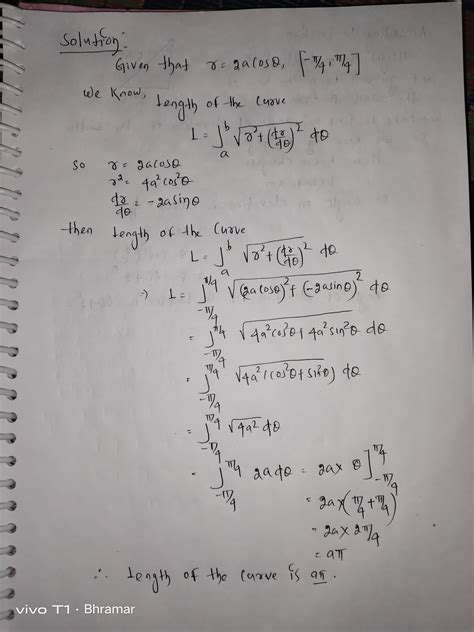 Solution:
Given that r = 2a cosθ, [-π/4, π/4]
We know, Length of the curve
L = ∫_a^b √(r² + (dr/dθ)²) dθ
so r = 2a cosθ
r² = 4a² cos²θ
dr/dθ = -2a sinθ
then Length of the curve
L = ∫_a^b √(r² + (dr/dθ)²) dθ
⇒ L = ∫_{-π/4}^{π/4} √((2a cosθ)² + (-2a sinθ)²) dθ
= ∫_{-π/4}^{π/4} √(4a² cos²θ + 4a² sin²θ) dθ
= ∫_{-π/4}^{π/4} √(4a² (cos²θ + sin²θ)) dθ
= ∫_{-π/4}^{π/4} √(4a²) dθ
= ∫_{-π/4}^{π/4} 2a dθ = 2a × θ]_{-π/4}^{π/4}
= 2a × (π/4 + π/4)
= 2a × 2π/4
= aπ
∴ Length of the curve is aπ.
vivo T1 · Bhramar